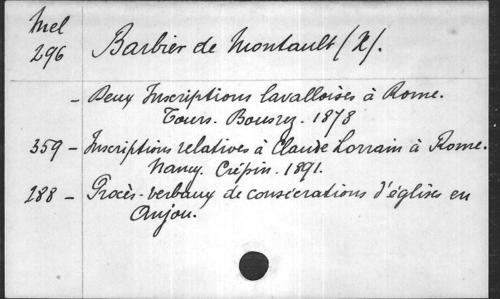 Mel
296 Barbier de Montault (X).
- Deux Inscriptions lavalloises à Rome.
Tours. Bousrez. 1878
359 - Inscriptions relatives à Claude Lorrain à Rome.
Nancy. Crépin. 1891.
288 - Procès-verbaux de consécrations d'églises en
Anjou.